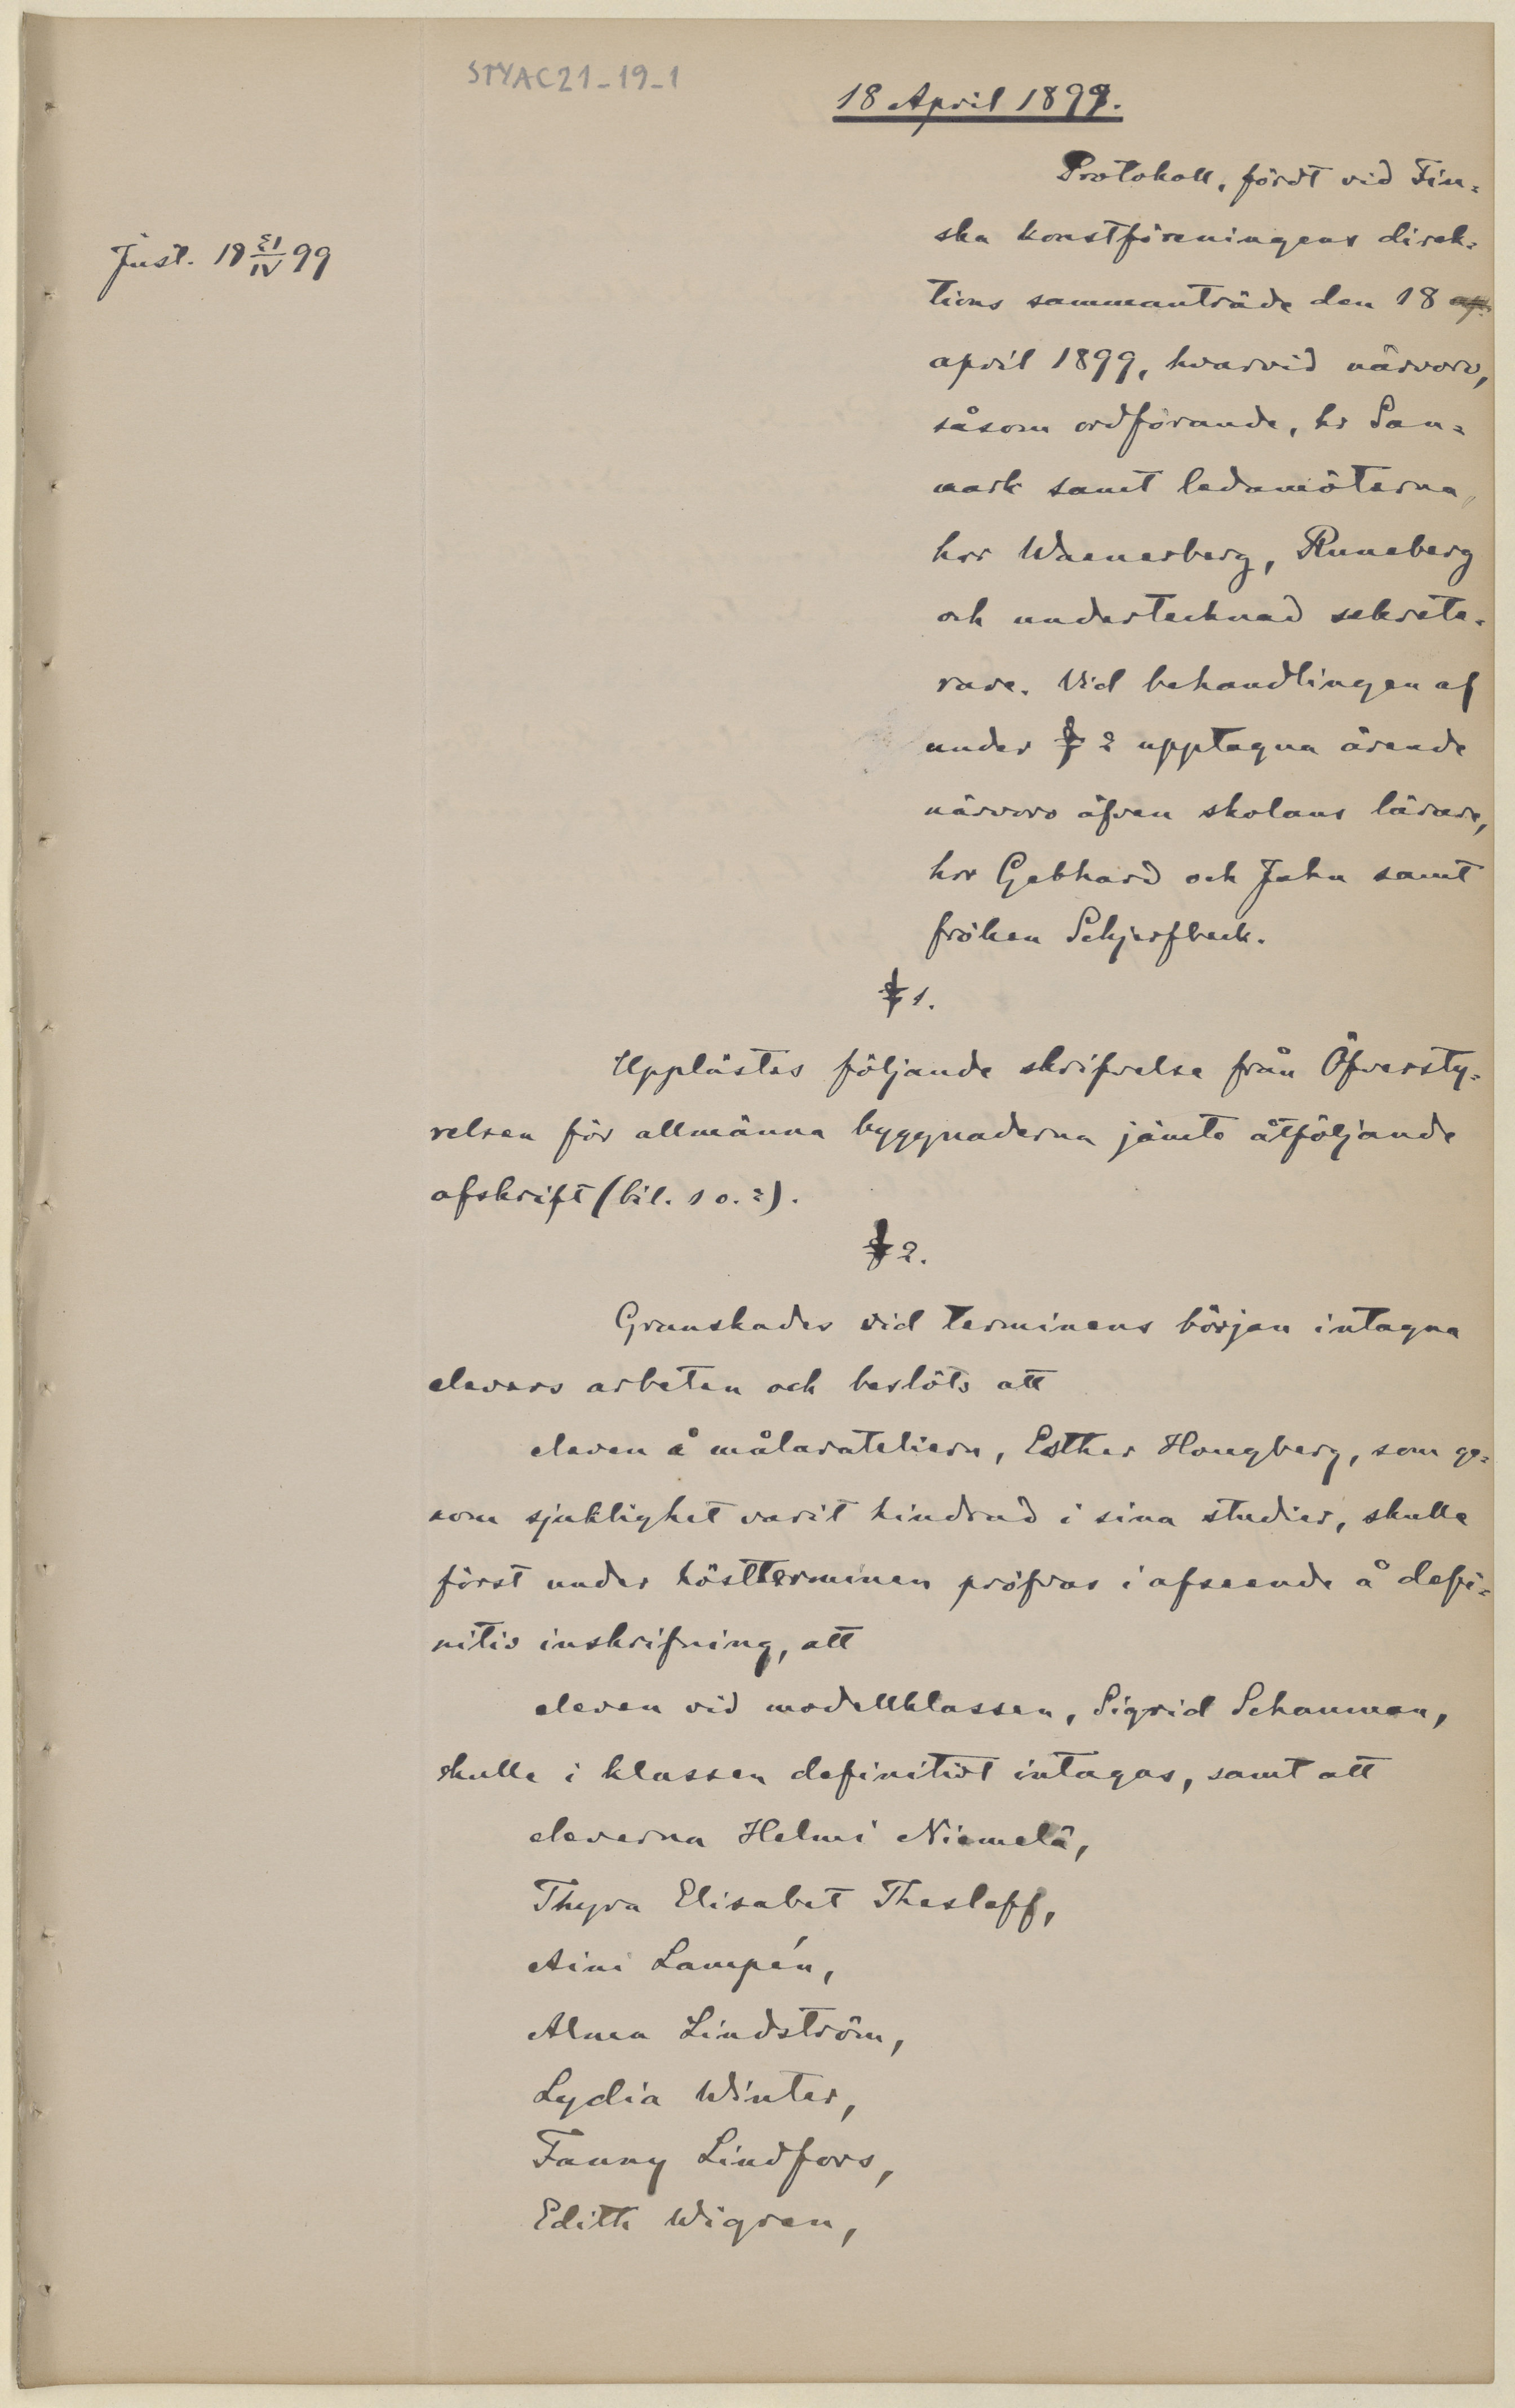 STYAC21-19-1
18 April 1899.
Just. 18 21/IV 99
Protokoll, fördt vid Fin-
ska konstföreningens direk-
tions sammanträde den 18 ap.
april 1899, hvarvid närvoro,
såsom ordförande, hr San-
mark samt ledamöterna,
hrr Waenerberg, Runeberg
och undertecknad sekrete-
rare. Vid behandlingen af
under § 2 upptagna ärende
närvoro äfven skolans lärare,
hrr Gebhard och Jahn samt
fröken Schjerfbeck.
§ 1.
Upplästes följande skrifvelse från Öfversty-
relsen för allmänna byggnaderna jämte åtföljande
afskrift (bil. 1 o. 2).
§ 2.
Granskades vid terminens början intagna
elevers arbeten och beslöts att
eleven å målarateliern, Esther Hougberg, som ge-
som sjuklighet varit hindrad i sina studier, skulle
först under höstterminen pröfvas i afseende å defi-
nitiv inskrifning, att
eleven vid modellklassen, Sigrid Schauman,
skulle i klassen definitivt intagas, samt att
eleverna Helmi Niemelä,
Thyra Elisabet Thesleff,
Aini Lampén,
Alma Lindström,
Lydia Winter,
Fanny Lindfors,
Edith Wigren,